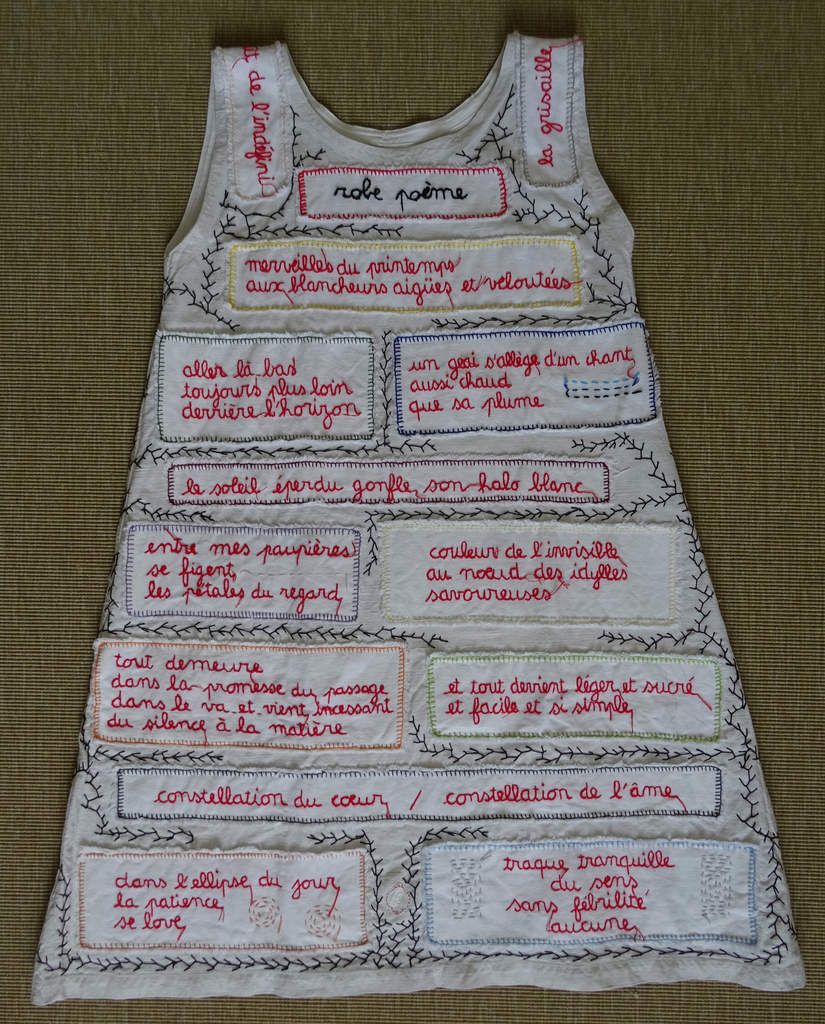 de l'indéfini
la grisaille
robe poème
merveilles du printemps
aux blancheurs aigües et veloutées
aller là bas
toujours plus loin
derrière l'horizon
un geai s'allège d'un chant
aussi chaud
que sa plume
le soleil éperdu gonfle son halo blanc
entre mes paupières
se figent
les pétales du regard
couleur de l'invisible
au nœud des idylles
savoureuses
tout demeure
dans la promesse du passage
dans le va et vient incessant
du silence à la matière
et tout devient léger et sucré
et facile et si simple
constellation du cœur / constellation de l'âme
dans l'ellipse du jour
la patience
se love
traque tranquille
du sens
sans fébrilité
aucune